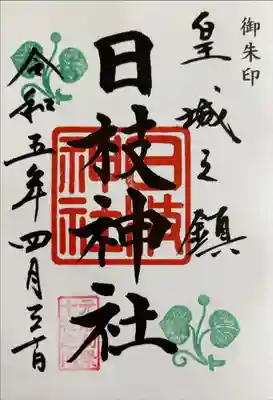 御朱印
皇城之鎮
日枝神社
日枝神社
令和五年四月三十日